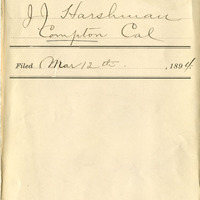 J J Harshman
Compton Cal
Filed Mar 12th. , 1894